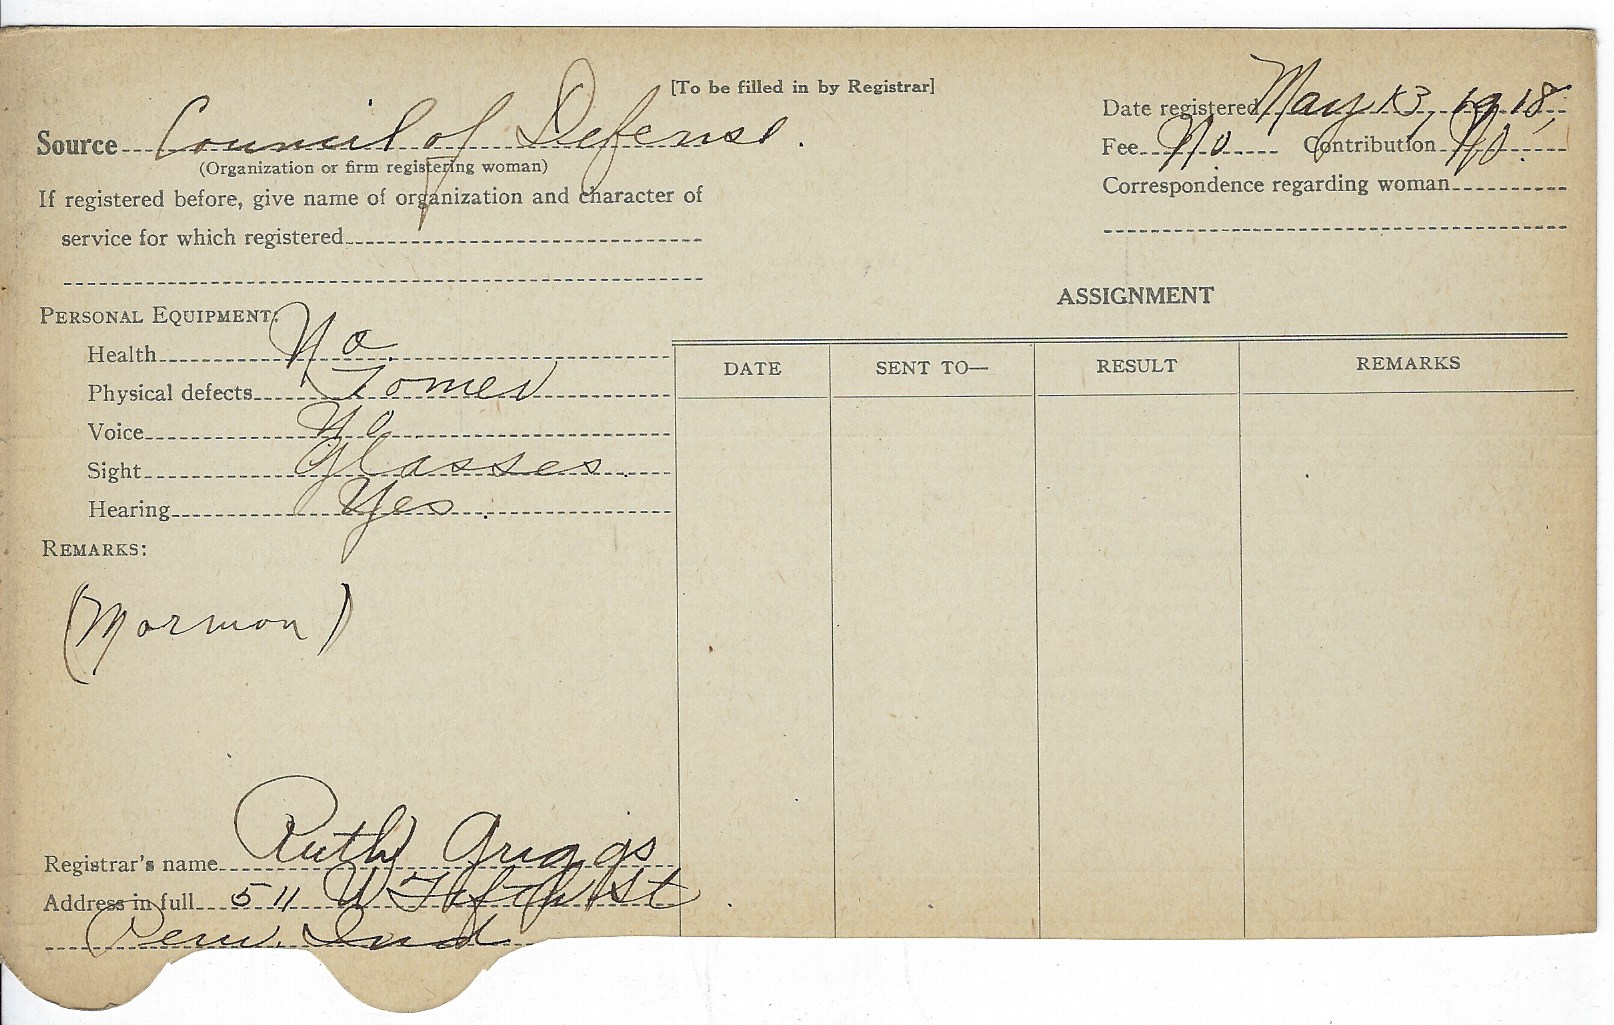 [To be filled in by Registrar]
Source Council of Defense.
(Organization or firm registering woman)
If registered before, give name of organization and character of
service for which registered
Date registered May 13, 1918,
Fee No Contribution No.
Correspondence regarding woman
PERSONAL EQUIPMENT:
Health No.
Physical defects
Voice No
Sight Glasses.
Hearing Yes.
REMARKS:
(Mormon)
ASSIGNMENT
DATE SENT TO— RESULT REMARKS
Registrar's name Ruth Griggs
Address in full 511 W Fifth St
Peru, Ind